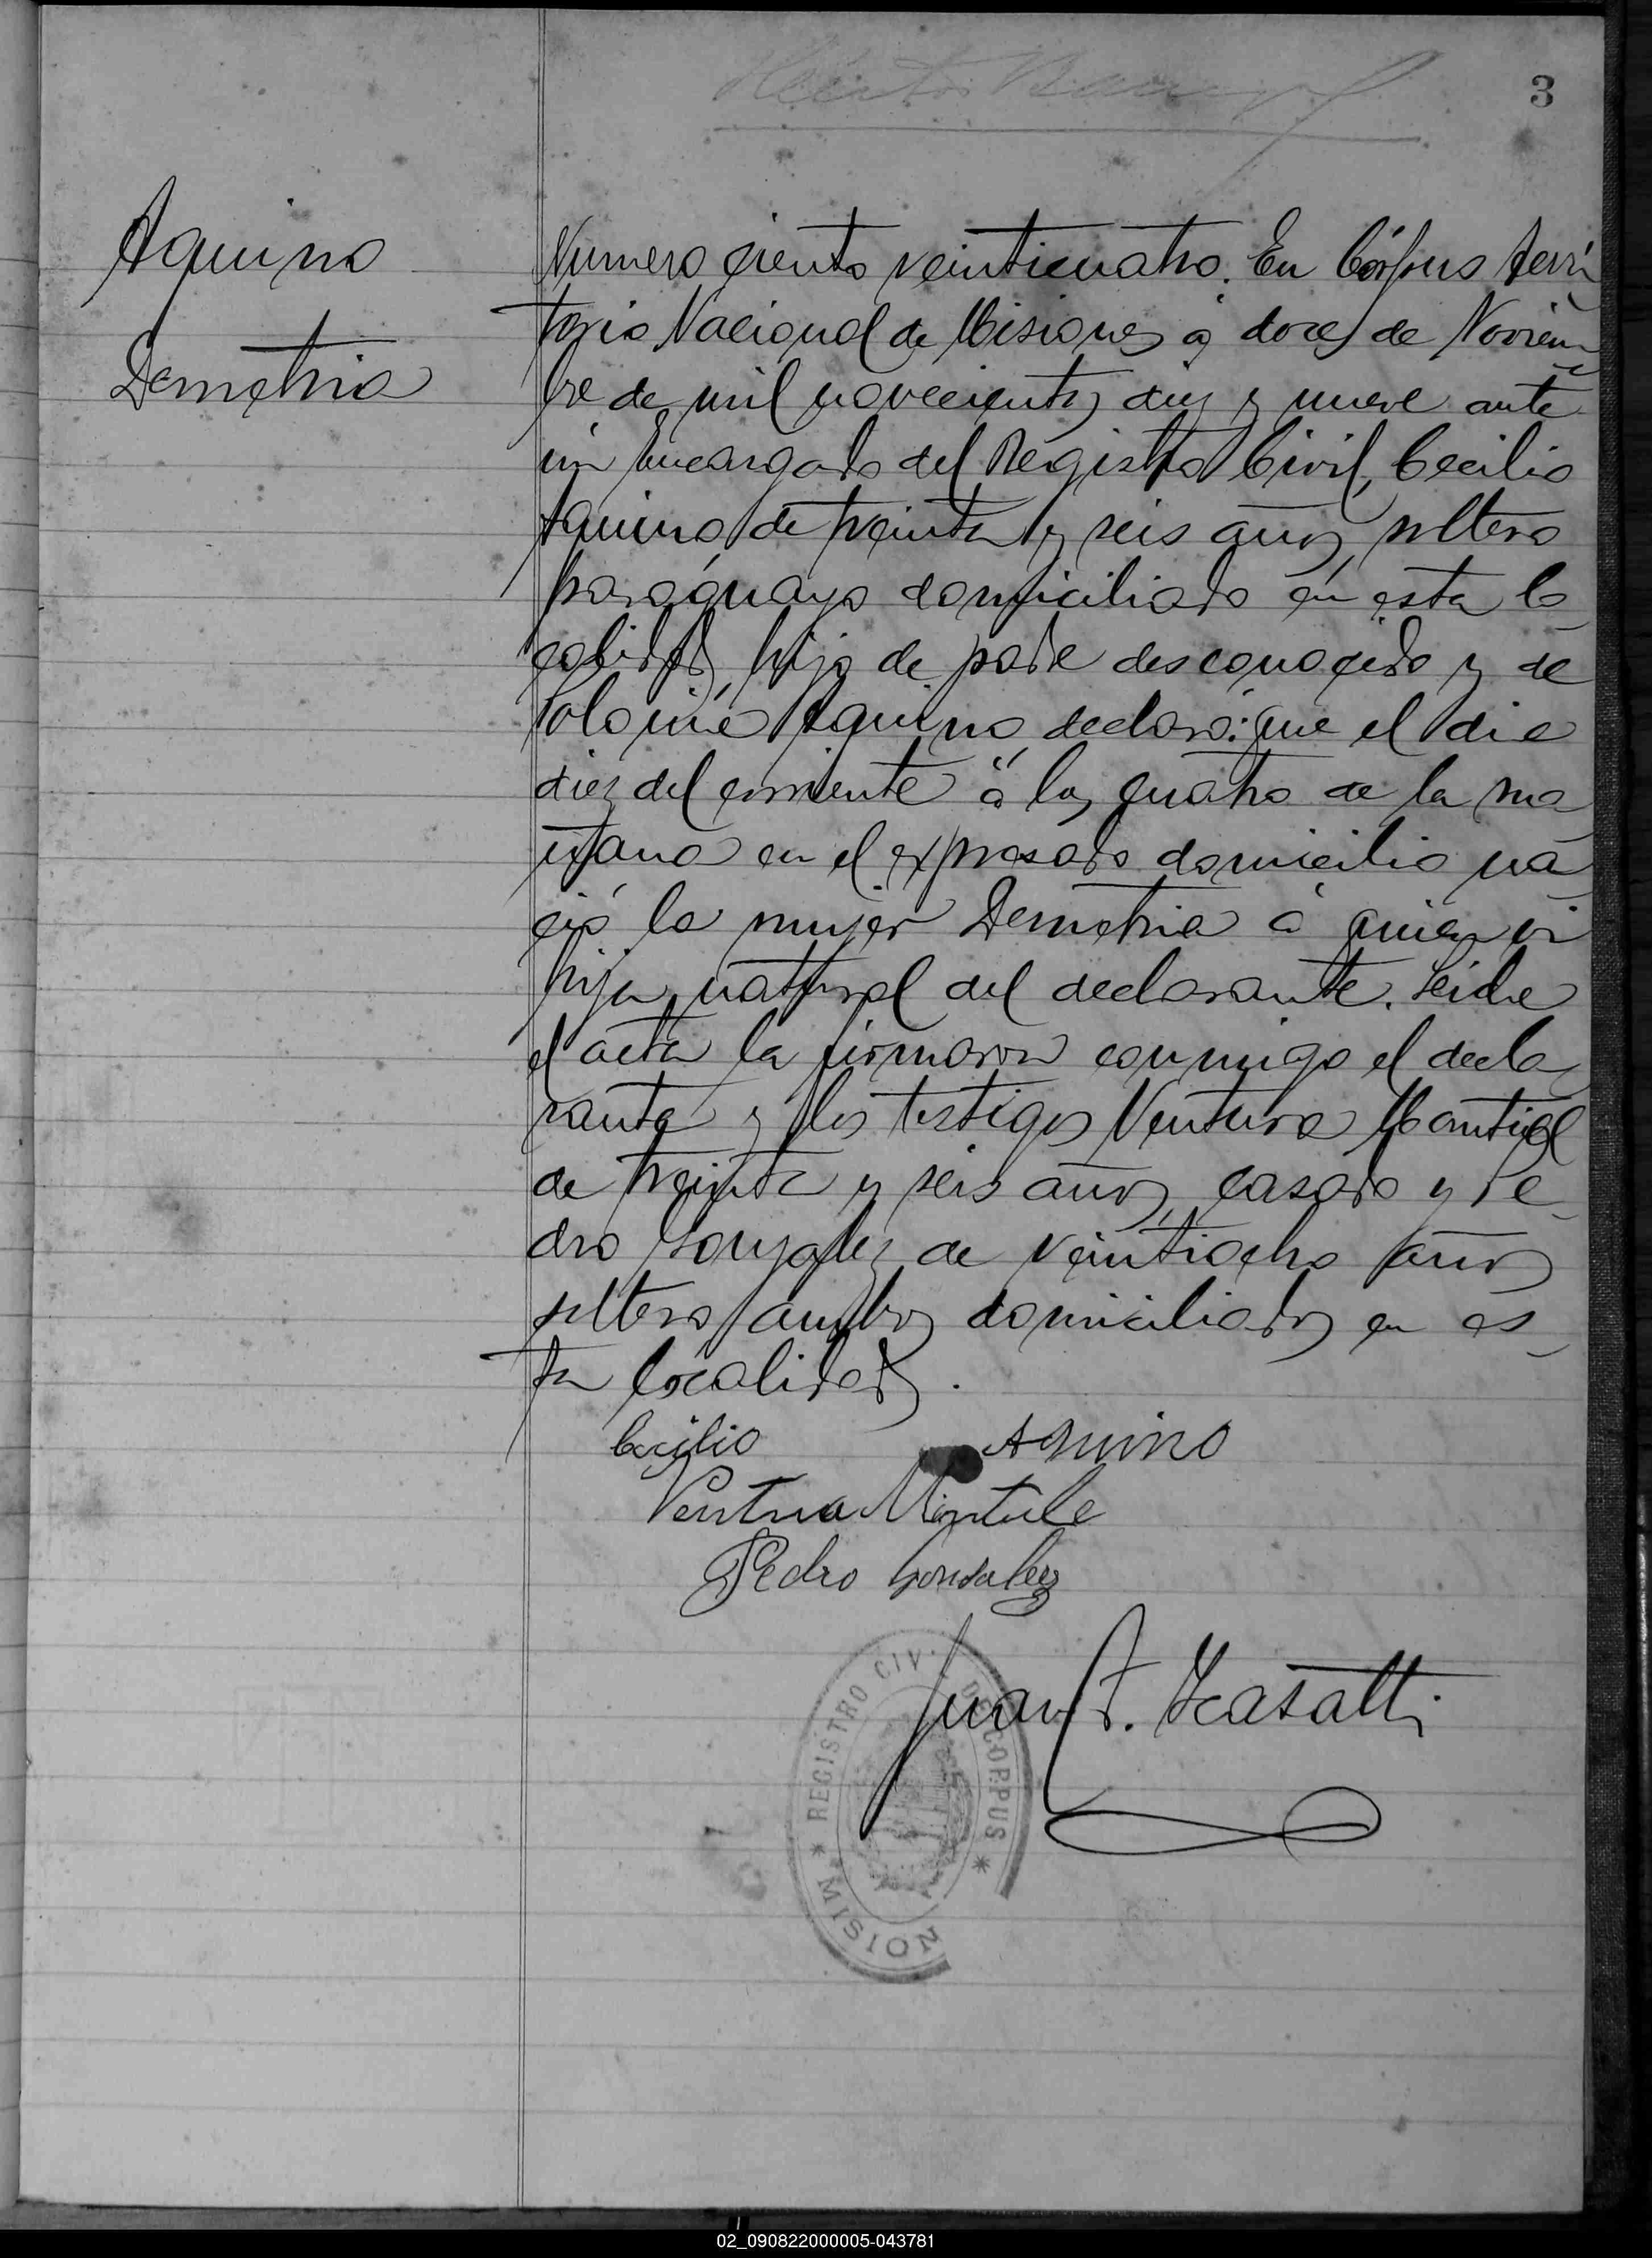 3
Aquino
Demetria
Numero ciento veinticuatro. En Córpus Terri
torio Nacional de Misiones á doce de Noviem
bre de mil novecientos diez y nueve ante
mi Encargado del Registro Civil, Cecilio
Aquino de treinta y seis años, soltero
paraguayo domiciliado en esta lo
calidad, hijo de padre desconocido y de
Aquino declaró: que el dia
diez del corriente á las cuatro de la ma
ñana en el expresado domicilio na
ció la mujer Demetria á quien vi
hija natural del declarante. Leida
el acta la firmaron conmigo el decla
rante y los testigos Ventura
de treinta y seis años, casado y Pe
dro Gonzalez de veintiocho años
soltero ambos domiciliados en es
ta localidad.
Cecilio Aquino
Ventura
Pedro Gonsalez
Juan F. Scasatti
REGISTRO CIV. DE CORPUS
MISION
02_090822000005-043781